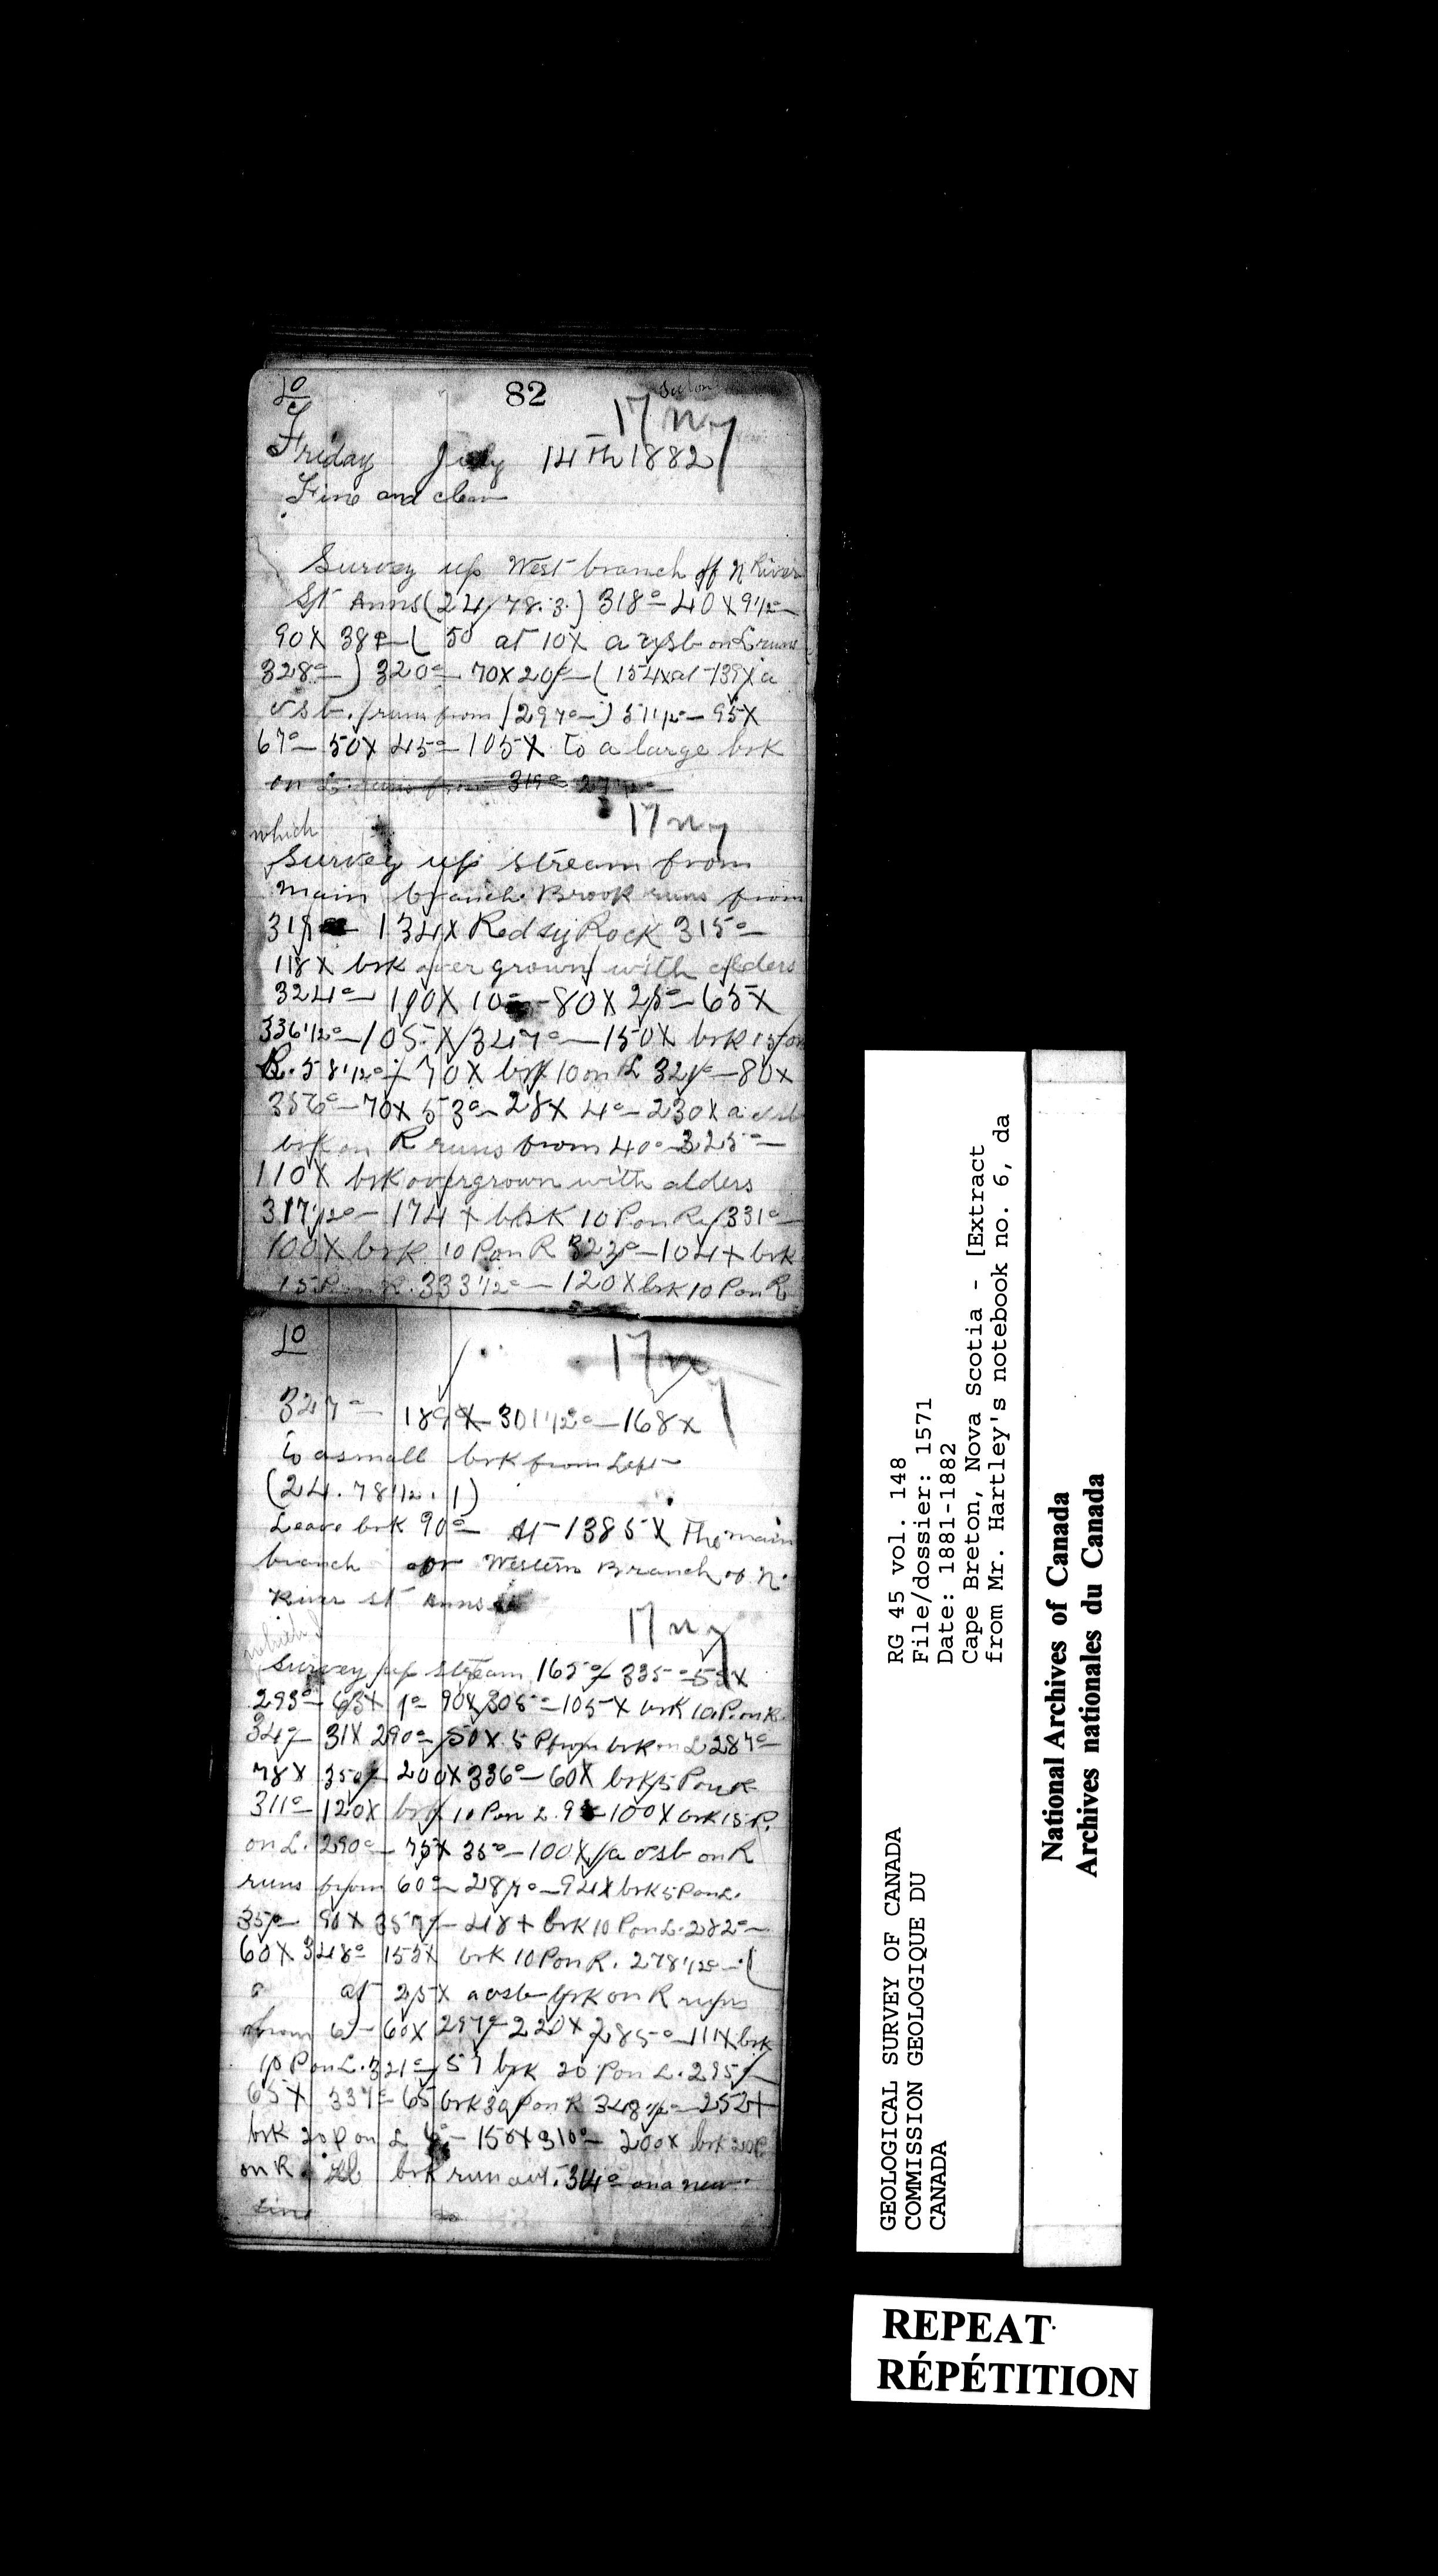 10
82
17 ny
Friday July 14th 1882
Fine and clear
Survey up West branch of N River
St Anns (24/78.3.) 318° 40X 9½°
90X 38° ( 50 at 10X a vsb on L runs
328° ) 320° 70X 20° ( 154X at 139X a
vsb. runs from (297°) 51½° 95X
67° 50X 45° 105X to a large brk
on L. runs from 319°
17 ny
which
Survey up stream from
main branch Brook runs from
319° 134X Red sy Rock 315°
118X brk over grown with alders
324° 190X 10° 80X 25° 65X
336½° 105X 347° 150X brk 15 on
R. 58½° 70X brk 10 on L 321° 80X
356° 70X 53° 28X 4° 230X a vsb
brk on R runs from 40° 325°
110X brk overgrown with alders
317½° 174X brk 10 P on R 331°
100X brk 10 P on R 323° 104X brk
15 P on R. 333½° 120X brk 10 P on R
10
17 ny
347° 189X 301½° 168X
to a small brk from Left
(24.78½.1)
Leave brk 90° At 1385X The main
branch or Western Branch of N.
River St Anns
17 ny
which
Survey up stream 165° 335° 55X
293° 63X 1° 90X 305° 105X brk 10 P. on R.
34° 31X 290° 50X 5 P from brk on L 287°
78X 350° 200X 336° 60X brk 15 P on R
311° 120X brk 10 P on L. 9° 100X brk 15 P.
on L. 290° 75X 35° 100X a vsb on R
runs from 60° 287° 94X brk 5 P on L.
35° 90X 357° 48X brk 10 P on L. 282°
60X 348° 155X brk 10 P on R. 278½° (
at 25X a vsb brk on R runs
from 6° 60X 297° 220X 285° 111X brk
10 P on L. 321° 57 brk 20 P on L. 295°
65X 337° 65 brk 30 P on R 348½° 252X
brk 20 P on L 4° 150X 310° 200X brk 20 P
on R. brk run out. 34° on a new
line
GEOLOGICAL SURVEY OF CANADA
COMMISSION GEOLOGIQUE DU
CANADA
RG 45 vol. 148
File/dossier: 1571
Date: 1881-1882
Cape Breton, Nova Scotia - [Extract
from Mr. Hartley's notebook no. 6, da
National Archives of Canada
Archives nationales du Canada
REPEAT
RÉPÉTITION